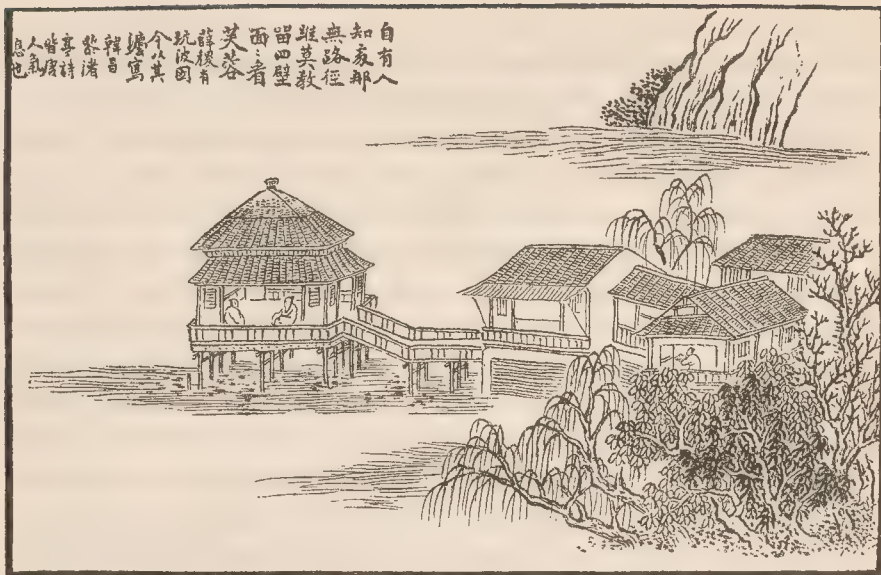 自有人
知處那
無路徑
蹤莫教
留四壁
面看
芙蓉
薛稷有
玩波圖
今以其
寫
韓昌
黎渚
亭詩
皆唐
人氣
息也